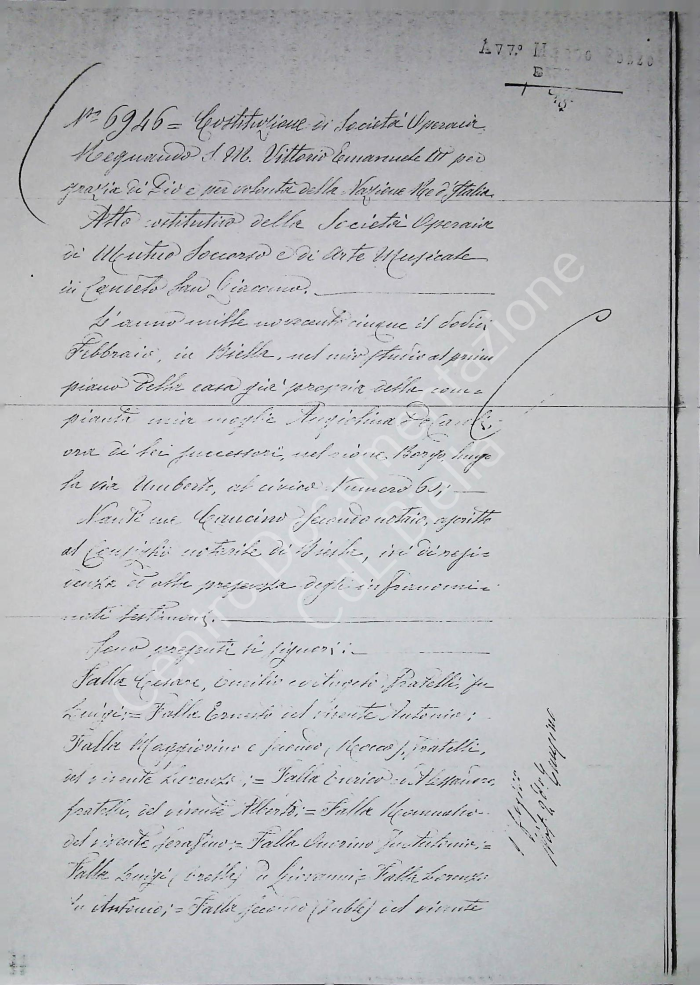 Avv.º
Nº 6946 = Costituzione di Società Operaia
Regnando S. M. Vittorio Emanuele III per
grazia di Dio e per volontà della Nazione Re d'Italia
Atto costitutivo della Società Operaia
di Mutuo Soccorso e di Arte Musicale
in Cameto San Giacomo.
L'anno mille novecento cinque il dodici
Febbraio, in Biella, nel mio studio al primo
piano della casa già propria della com=
pianta mia moglie Angiolina
ora di lei successori, nel rione Borgo, lungo
la via Umberto, al civico Numero
Nanti me Cancino Secondo notaio, ascritto
al Consiglio notarile di Biella, ivi di resi=
denza ed alla presenza degli infranomi=
nati testimoni.
Sono presenti li signori:
Falla Cesare, Emilio ed fratelli, fu
Luigi; = Falla Ernesto del vivente Antonio;
Falla Maggiorino e Secondo fratelli,
del vivente Lorenzo; = Falla Enrico e Alessandro,
fratelli, del vivente Alberto; = Falla Romualdo
del vivente Serafino; = Falla Guerino fu Antonio; =
Falla Luigi di Giovanni; = Falla Lorenzo
fu Antonio; = Falla Secondo del vivente
1º foglio
Cancino
Centro Documentazione
CdL Biella